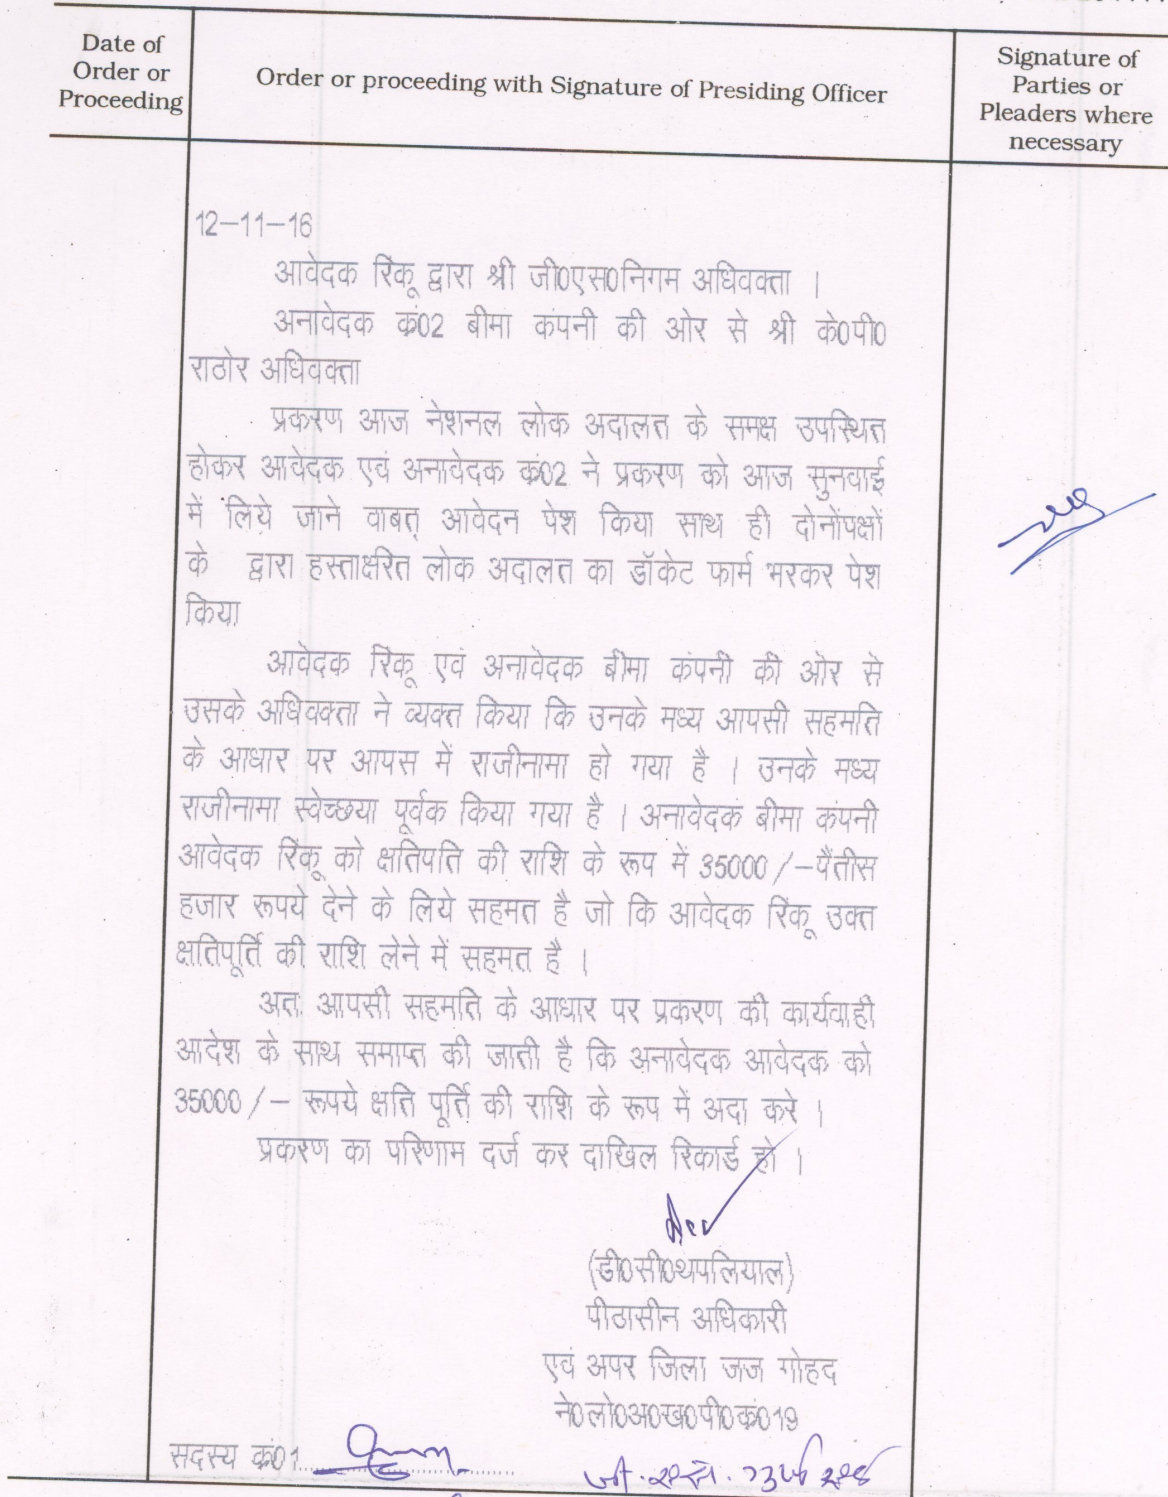 Date of
Order or
Proceeding
Order or proceeding with Signature of Presiding Officer
Signature of
Parties or
Pleaders where
necessary
12–11–16
आवेदक रिंकू द्वारा श्री जी0एस0निगम अधिवक्ता ।
अनावेदक कं02 बीमा कंपनी की ओर से श्री के0पी0
राठोर अधिवक्ता
प्रकरण आज नेशनल लोक अदालत के समक्ष उपस्थित
होकर आवेदक एवं अनावेदक कं02 ने प्रकरण को आज सुनवाई
में लिये जाने वाबत् आवेदन पेश किया साथ ही दोनोंपक्षों
के द्वारा हस्ताक्षरित लोक अदालत का डॉकेट फार्म भरकर पेश
किया
आवेदक रिंकू एवं अनावेदक बीमा कंपनी की ओर से
उसके अधिवक्ता ने व्यक्त किया कि उनके मध्य आपसी सहमति
के आधार पर आपस में राजीनामा हो गया है । उनके मध्य
राजीनामा स्वेच्छया पूर्वक किया गया है । अनावेदक बीमा कंपनी
आवेदक रिंकू को क्षतिपति की राशि के रूप में 35000/–पैंतीस
हजार रूपये देने के लिये सहमत है जो कि आवेदक रिंकू उक्त
क्षतिपूर्ति की राशि लेने में सहमत है ।
अतः आपसी सहमति के आधार पर प्रकरण की कार्यवाही
आदेश के साथ समाप्त की जाती है कि अनावेदक आवेदक को
35000/– रूपये क्षति पूर्ति की राशि के रूप में अदा करे ।
प्रकरण का परिणाम दर्ज कर दाखिल रिकार्ड हो ।
(डी0सी0थपलियाल)
पीठासीन अधिकारी
एवं अपर जिला जज गोहद
ने0लो0अ0ख0पी0कं019
सदस्य कं01